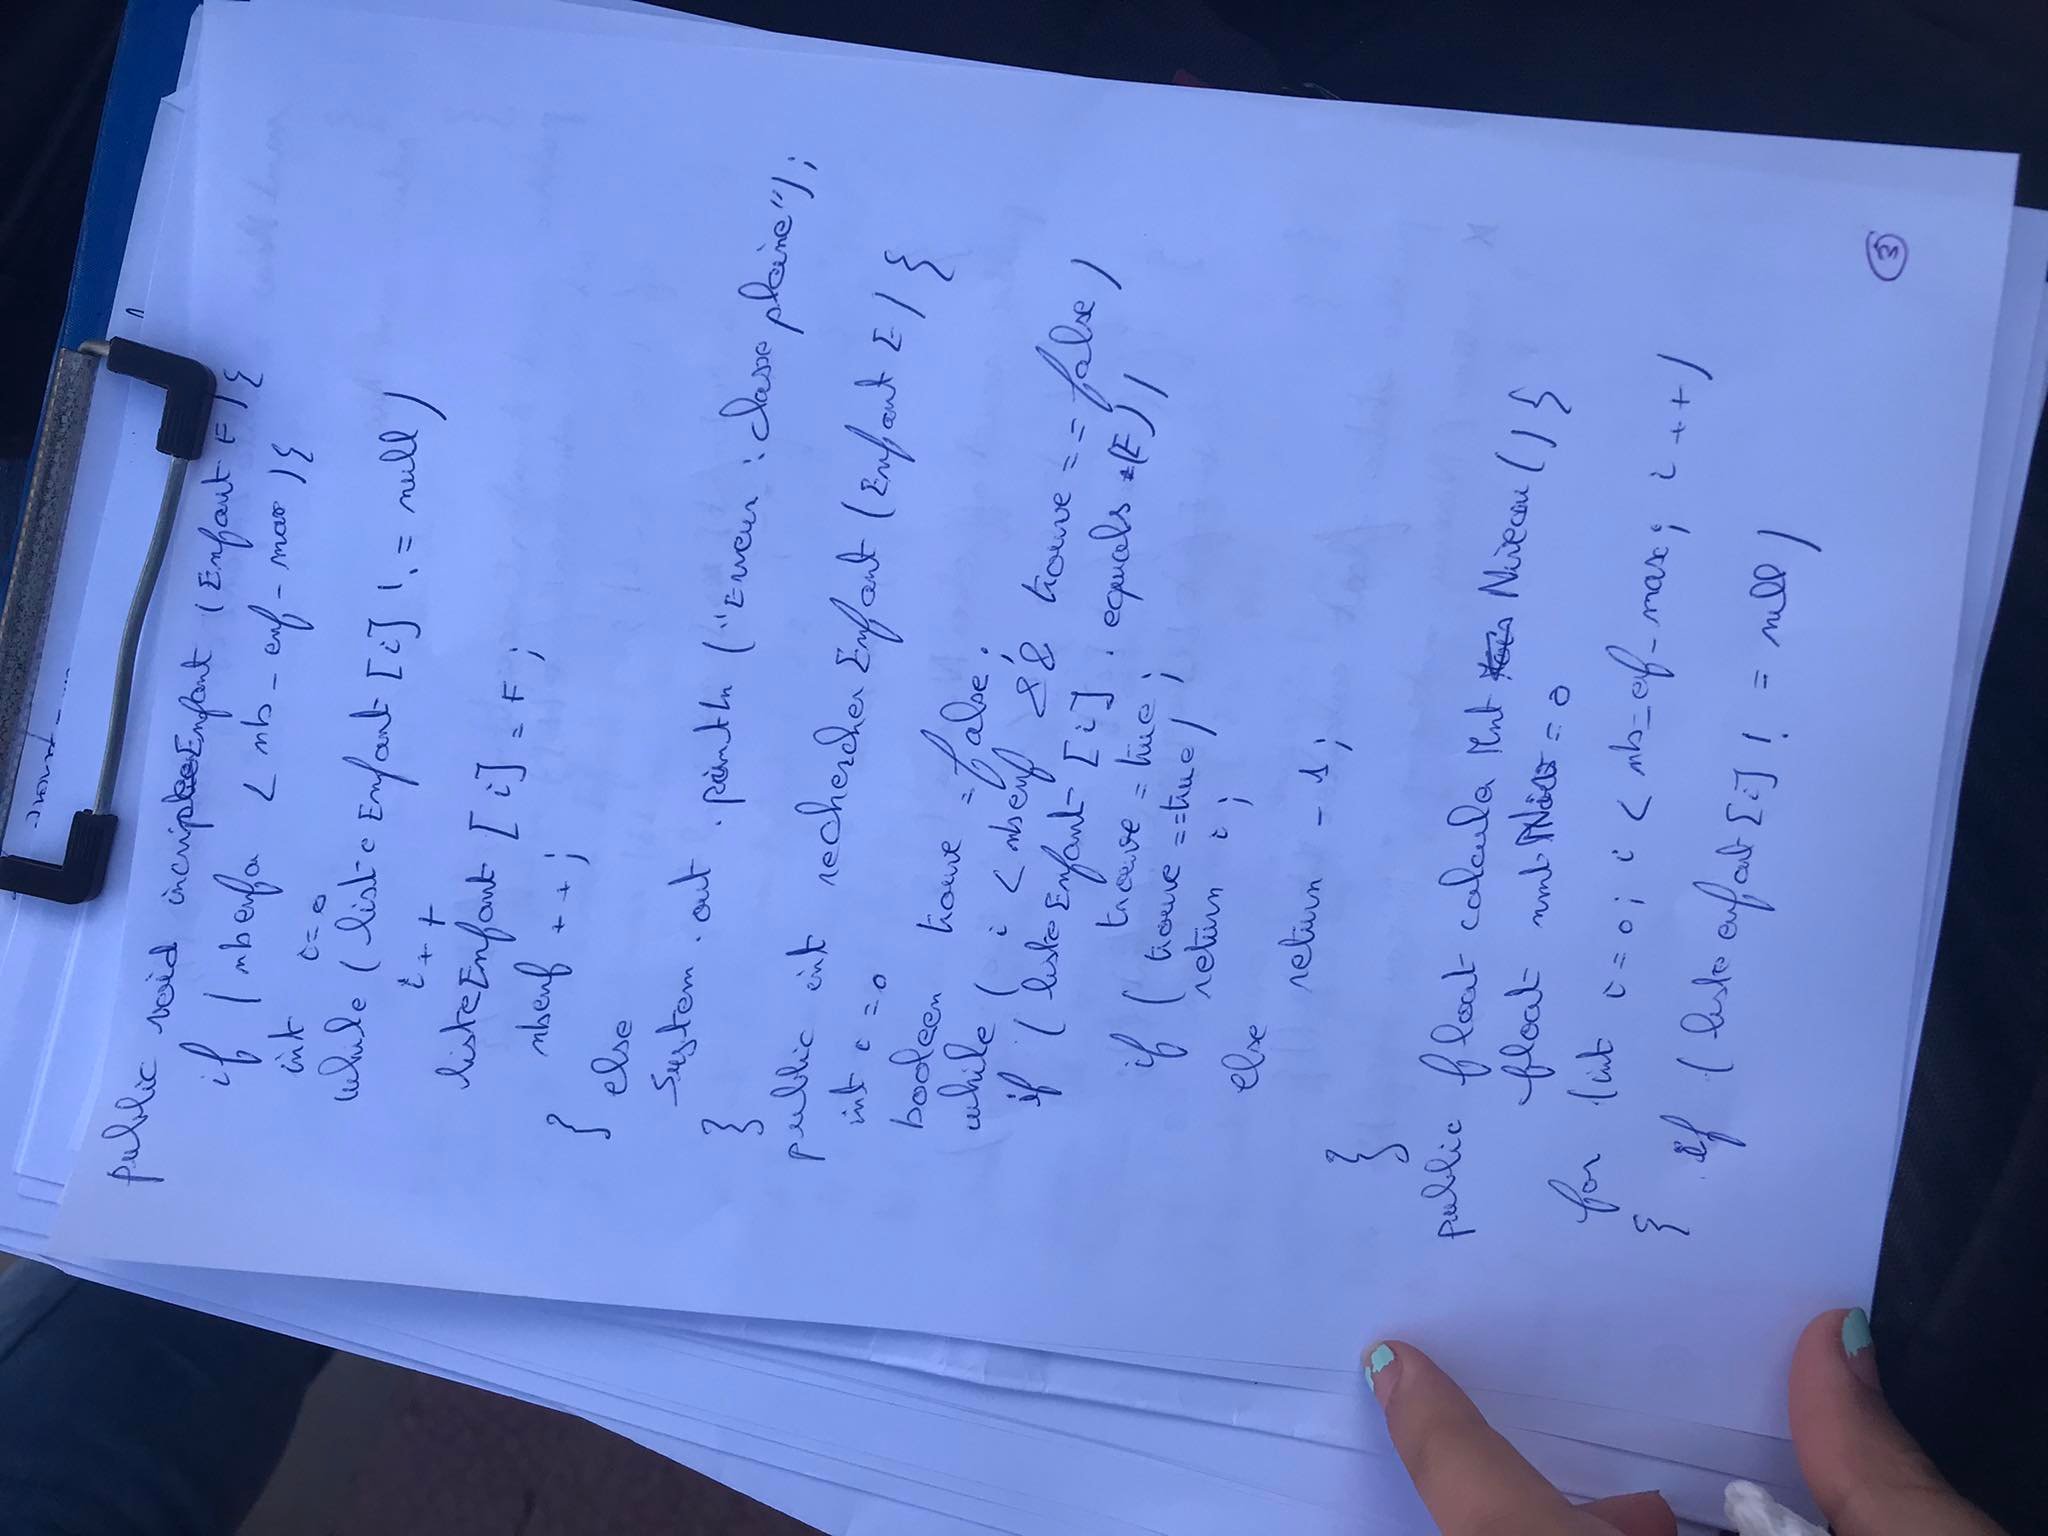 public void incripteeEnfant (Enfant F) {
if (nbenfa < nb_enf_max) {
int i=0
while (liste Enfant [i] != null)
i++
listeEnfant [i] = F;
nbenf ++;
} else
System.out.println ("Erreur : classe pleine");
}
public int rechercher Enfant (Enfant E) {
int i=0
booleen trouve = false;
while ( i < nbenf && trouve == false)
if ( liste Enfant [i]. equals (E))
trouve = true;
if ( trouve ==true)
return i;
else
return -1;
}
public float calcula Mnt Niveau () {
float = 0
for (int i=0; i < nb_ef_max; i++)
{ if ( liste enfant [i] != null)
3